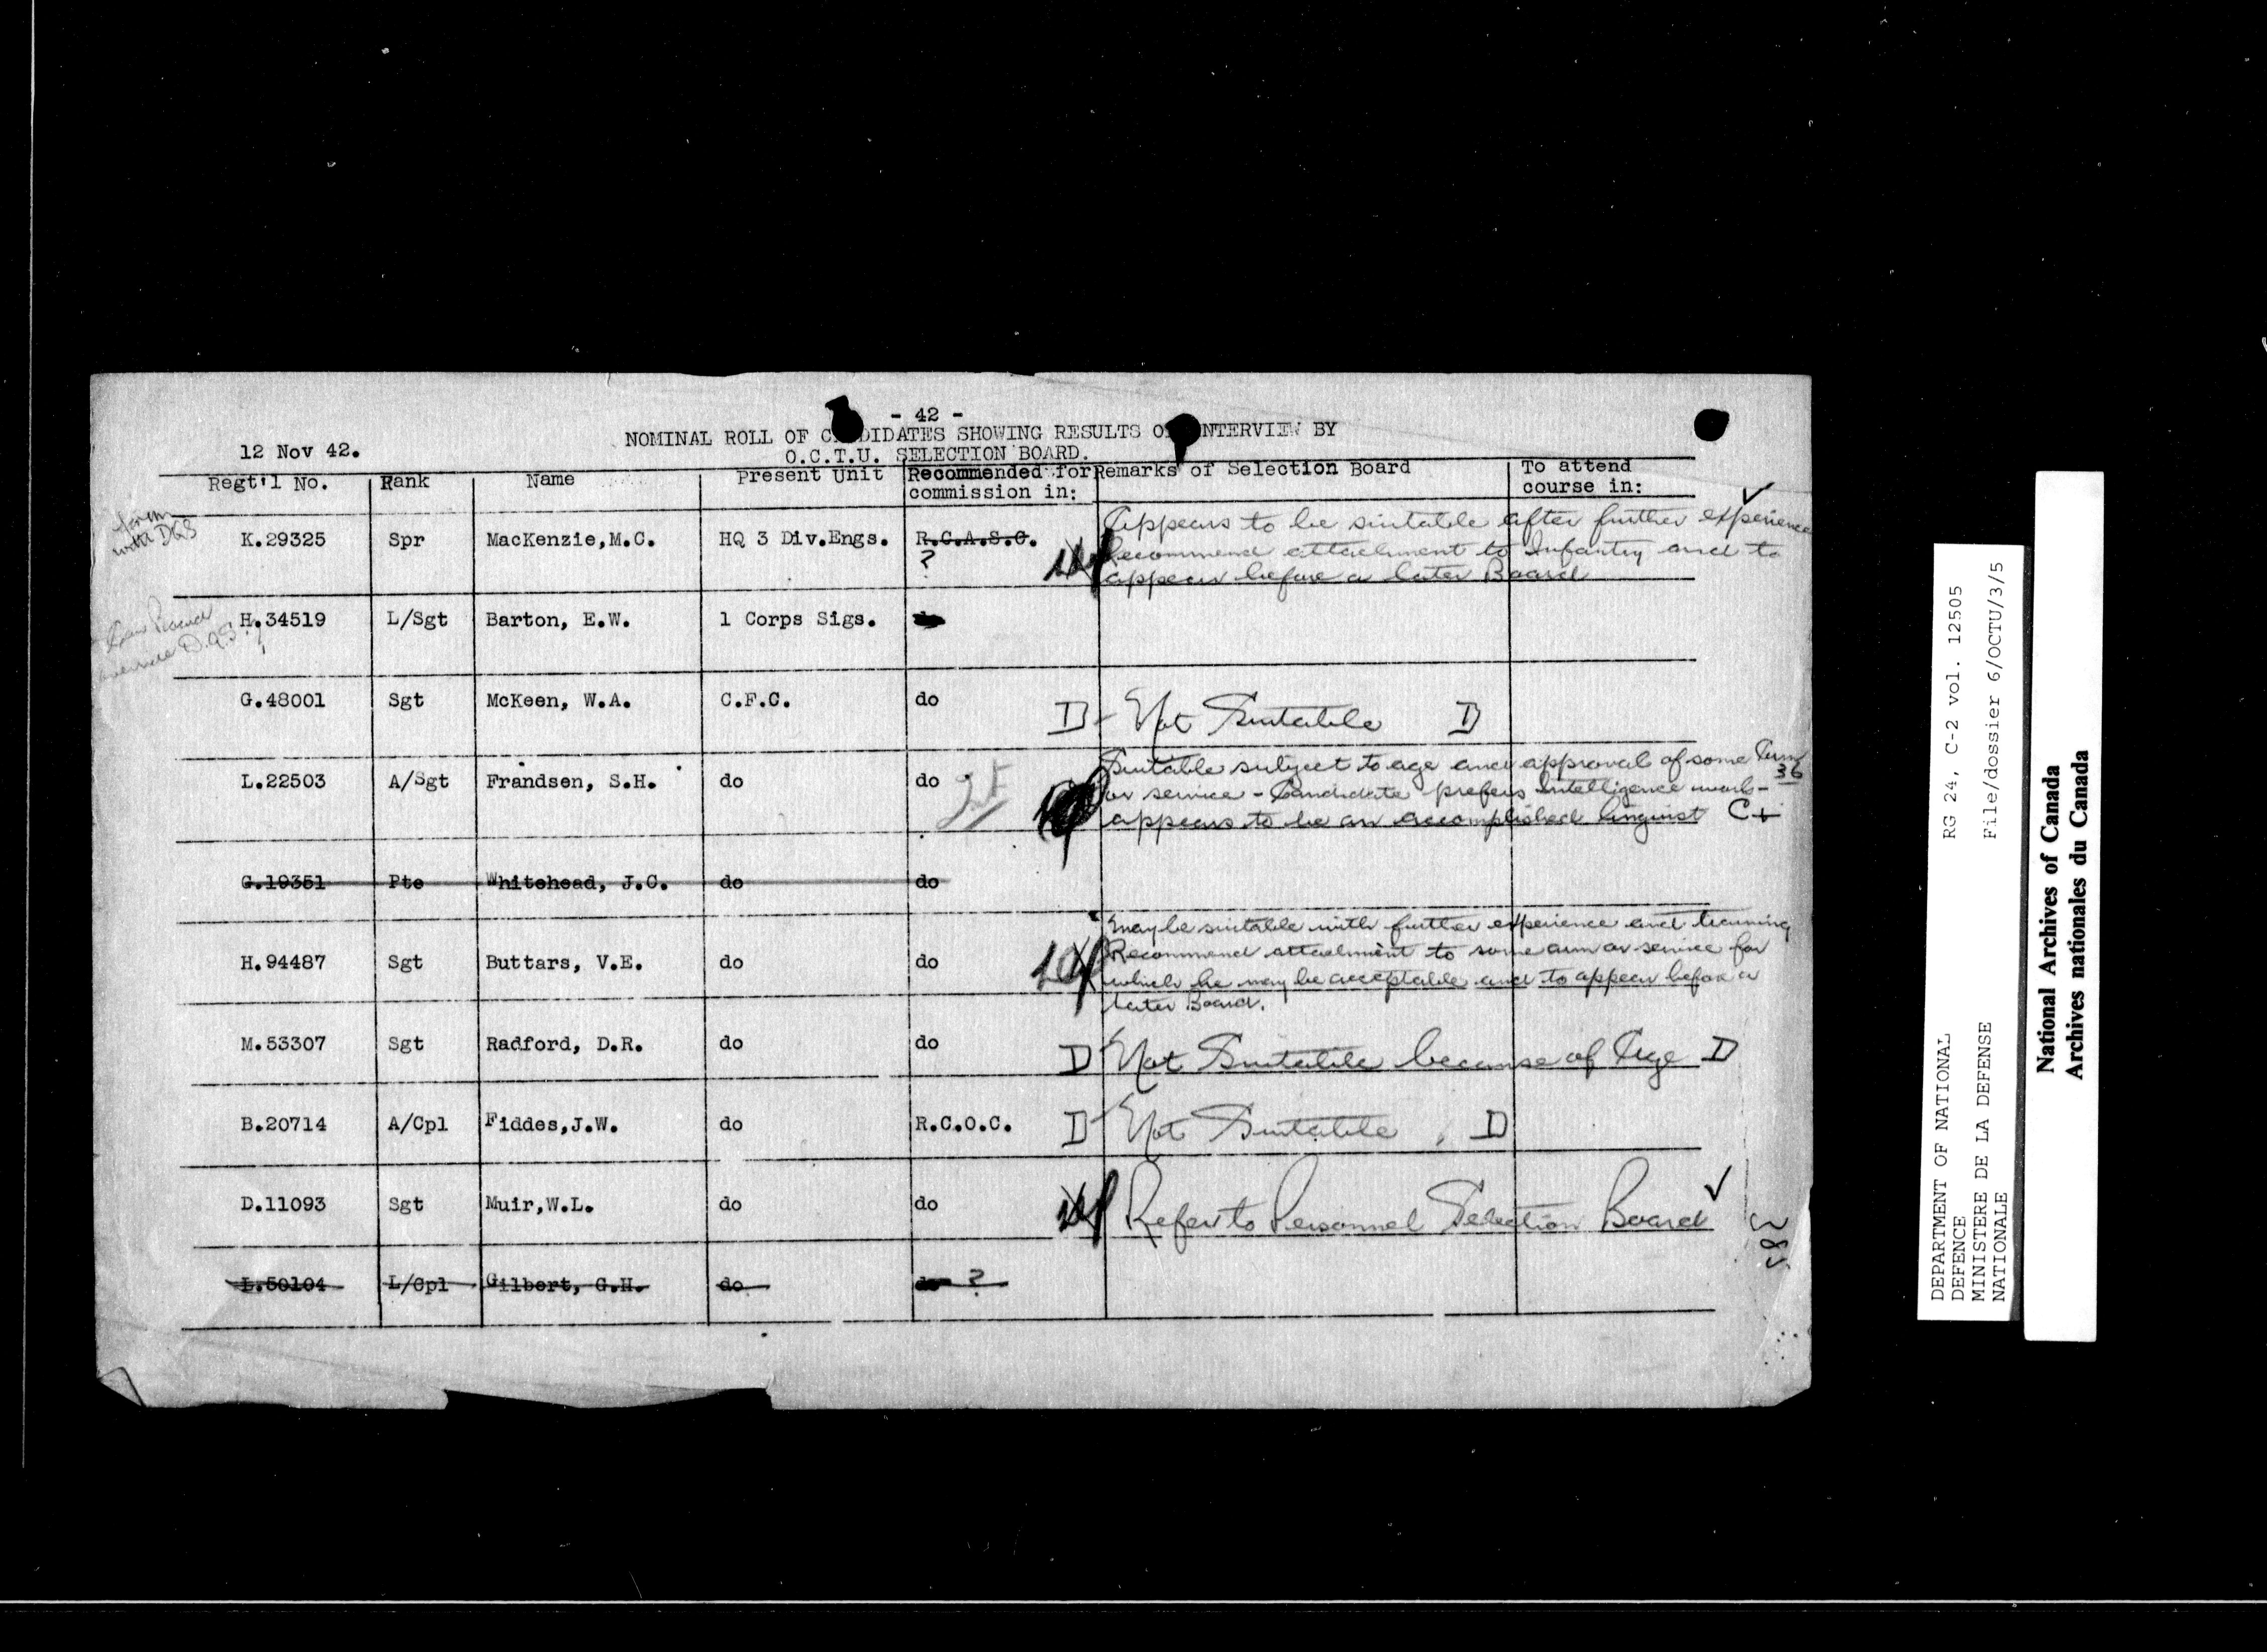 - 42 -
NOMINAL ROLL OF CANDIDATES SHOWING RESULTS OF INTERVIEW BY
12 Nov 42.
O.C.T.U. SELECTION BOARD.
Regt'l No. Rank Name Present Unit Recommended for commission in: Remarks of Selection Board To attend course in:
with DGS
K.29325 Spr MacKenzie,M.C. HQ 3 Div.Engs. R.C.A.S.C. ?
Appears to be suitable after further experience
Recommend attachment to Infantry and to
appear before a later Board
H.34519 L/Sgt Barton, E.W. 1 Corps Sigs. do
G.48001 Sgt McKeen, W.A. C.F.C. do D Not Suitable D
L.22503 A/Sgt Frandsen, S.H. do do
Suitable subject to age and approval of some Arm
36
or service - Candidate prefers Intelligence work -
appears to be an accomplished linguist C+
G.19351 Pte Whitehead, J.C. do do
H.94487 Sgt Buttars, V.E. do do
May be suitable with further experience and training
Recommend attachment to some arm or service for
which he may be acceptable and to appear before a
later Board.
M.53307 Sgt Radford, D.R. do do D Not Suitable because of Age D
B.20714 A/Cpl Fiddes,J.W. do R.C.O.C. D Not Suitable D
D.11093 Sgt Muir,W.L. do do Refer to Personnel Selection Board
L.50104 L/Cpl Gilbert, G.H. do do ?
583
DEPARTMENT OF NATIONAL
DEFENCE
MINISTERE DE LA DEFENSE
NATIONALE
RG 24, C-2 vol. 12505
File/dossier 6/OCTU/3/5
National Archives of Canada
Archives nationales du Canada